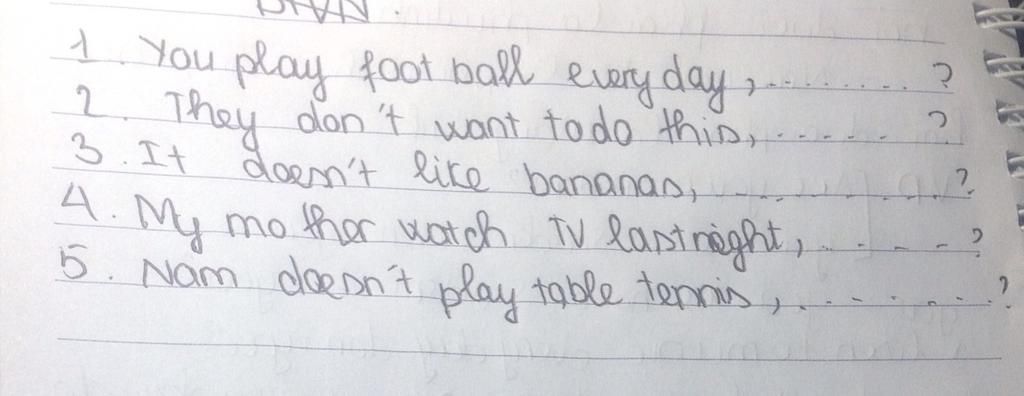 BTVN.
1. You play foot ball every day, .........?
2. They don't want to do this, ......?
3. It doesn't like bananas, ..........?
4. My mother watch TV last night, ......?
5. Nam doesn't play table tennis, .........?